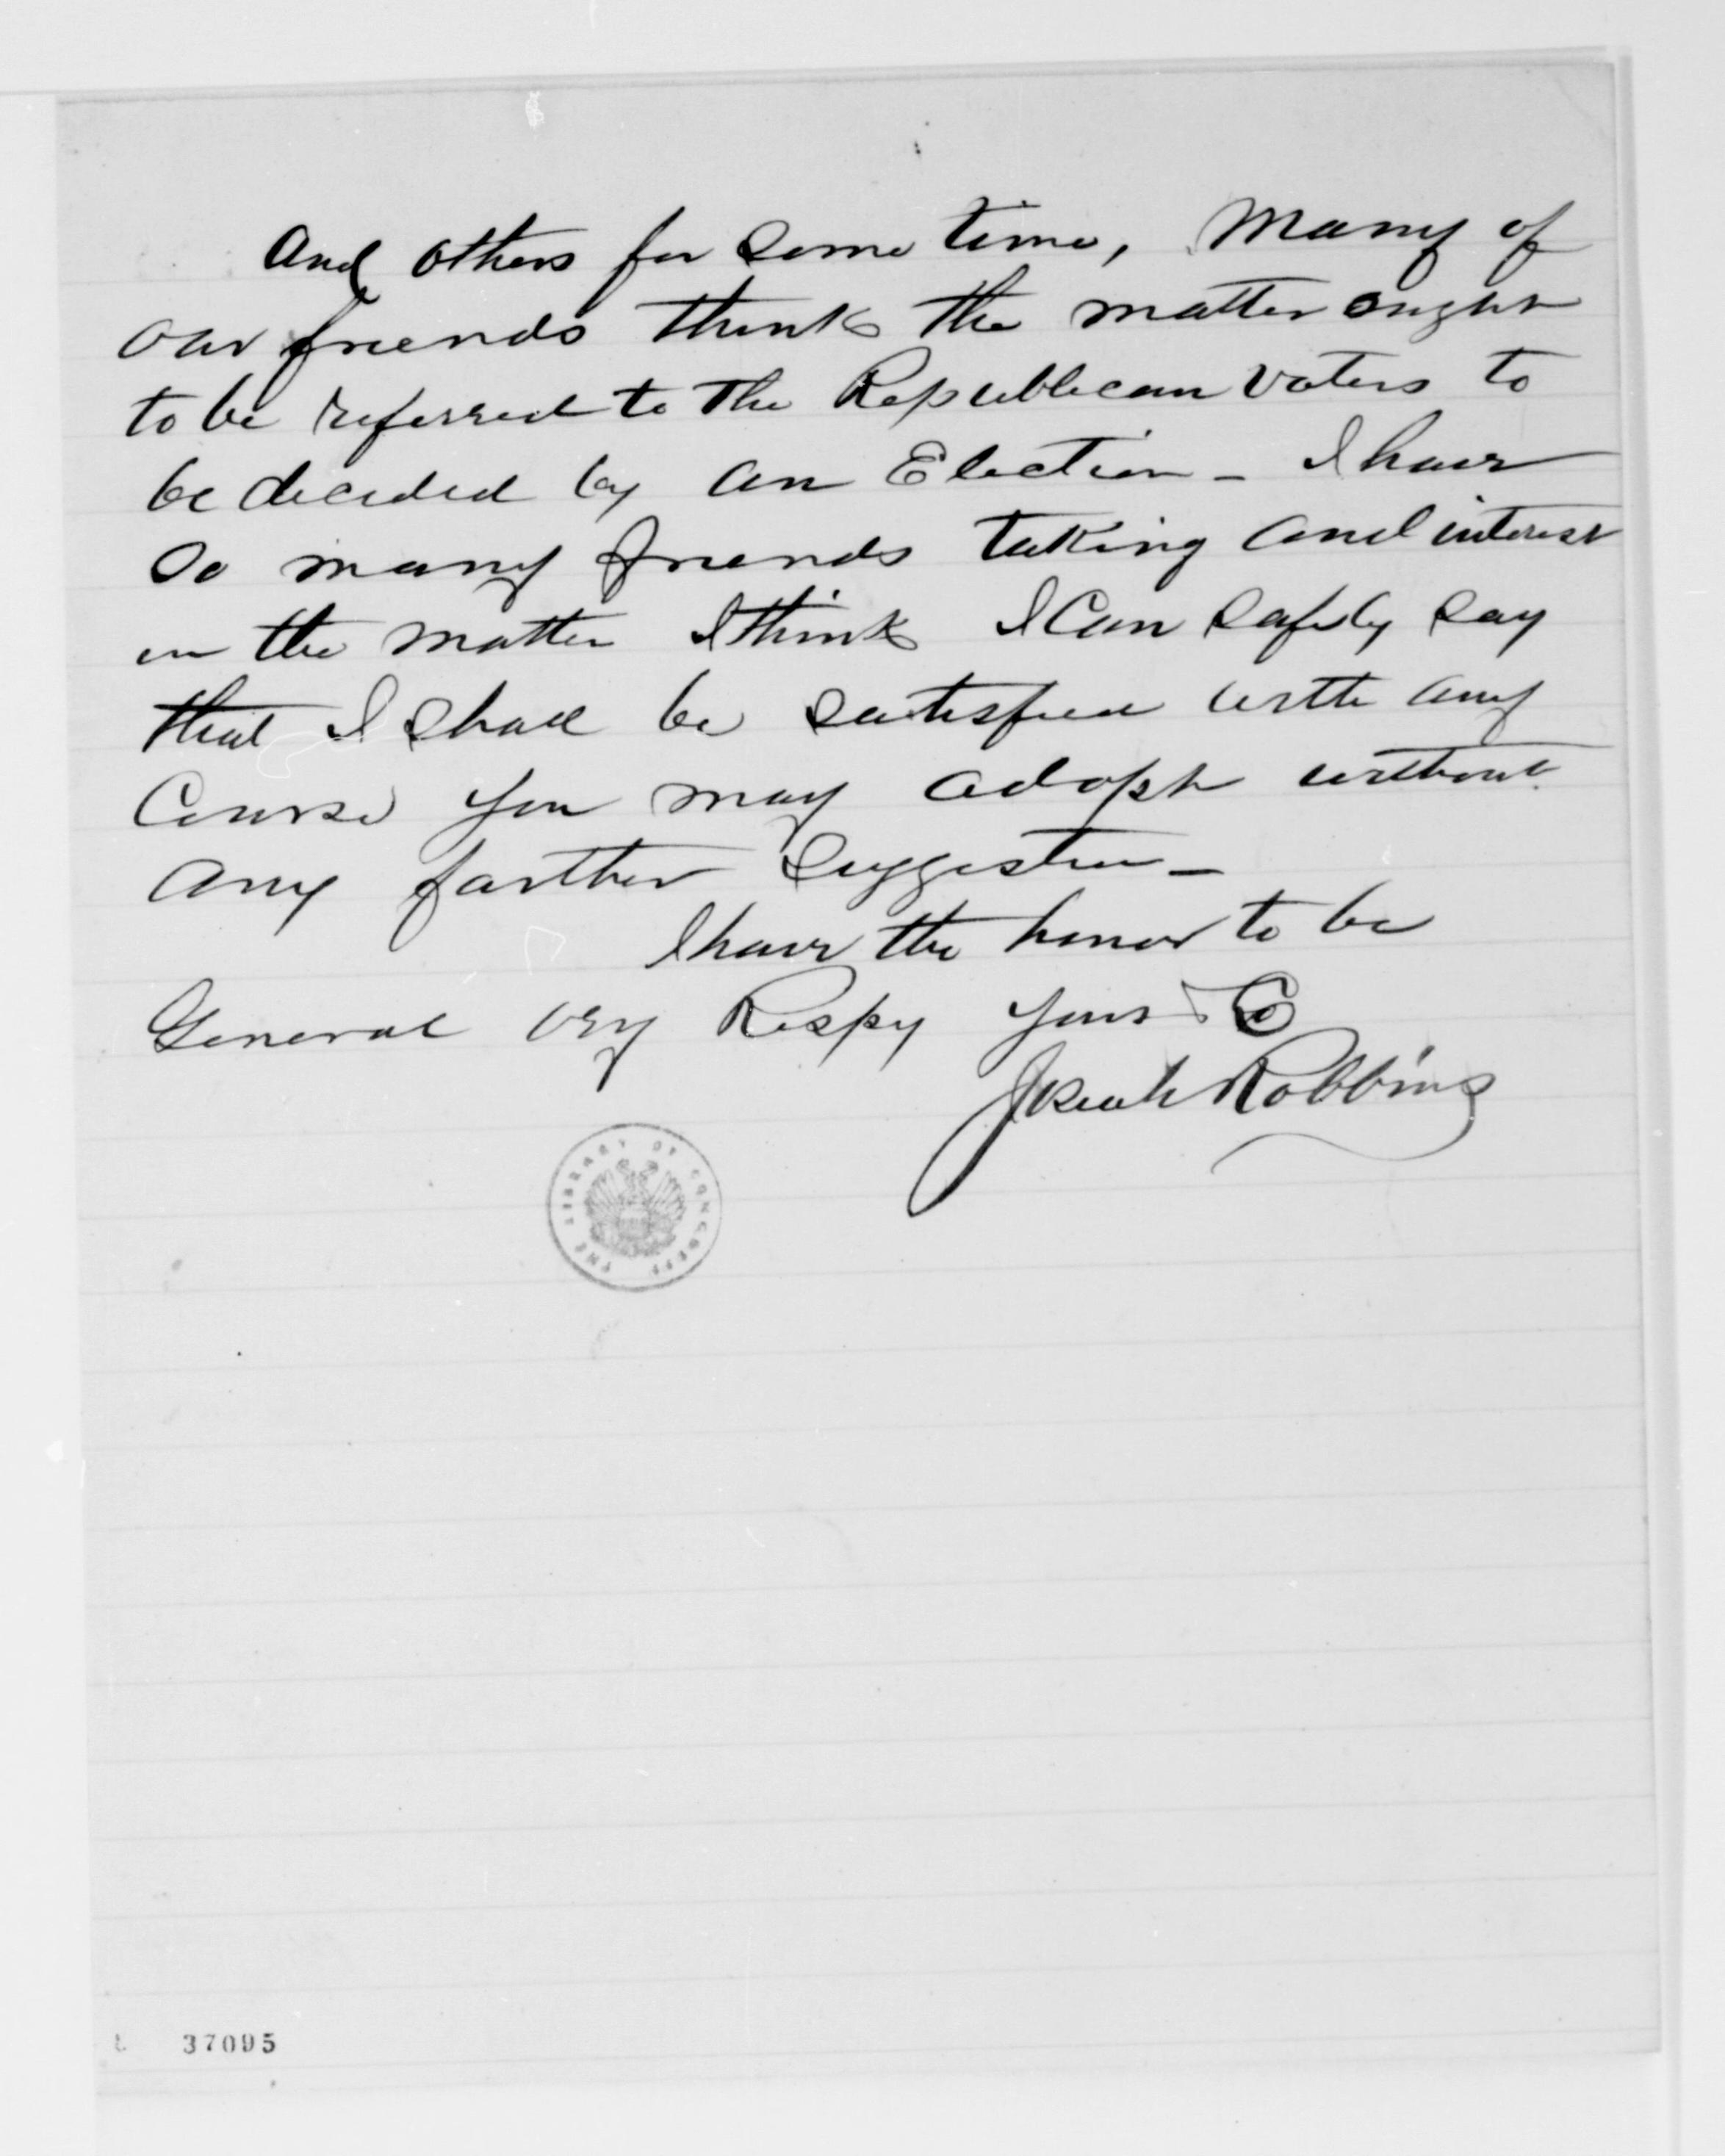 And others for some time, Many of
our friends think the matter ought
to be referred to the Republican voters to
be decided by an Election - I have
so many friends taking and interest
in the matter I think I can safely say
that I shall be satisfied with any
Course you may adopt without
any farther suggestion -
I have the honor to be
General vry Respy yours &C
Josiah Robbins
THE LIBRARY OF CONGRESS
37095